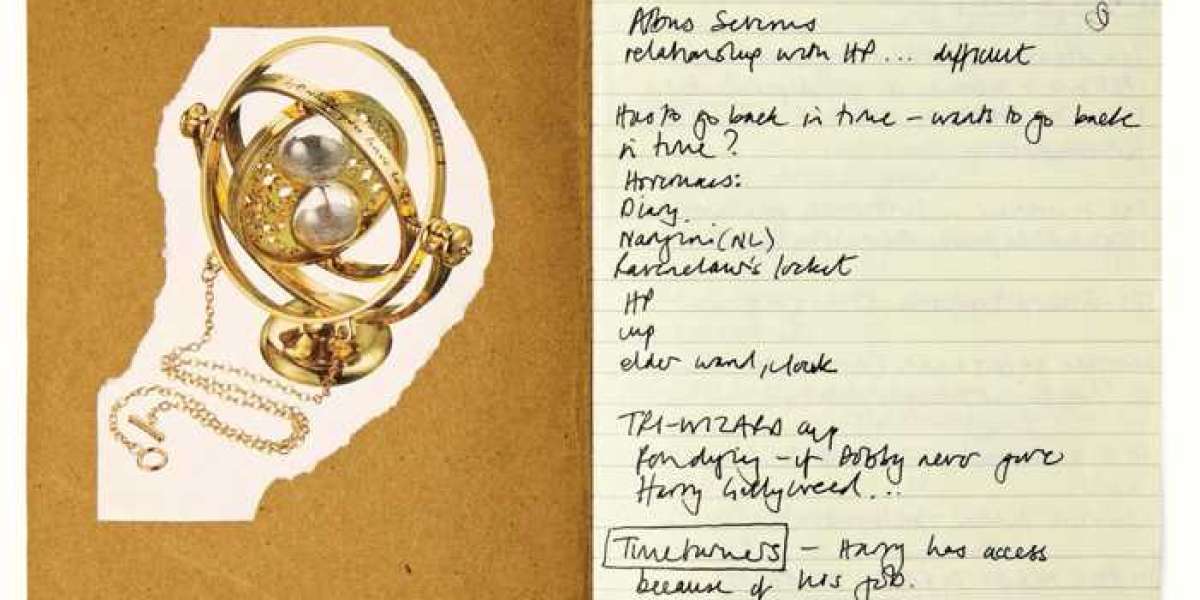 Albus Severus
relationship with HP... difficult
Has to go back in time – wants to go back
in time?
Horcruxes:
Diary
Nagini (NL)
Ravenclaw's locket
HP
cup
elder wand, cloak
TRI-WIZARD cup
Ron dying – if Dobby never gave
Harry Gillyweed...
Timeturners – Harry has access
because of his job.